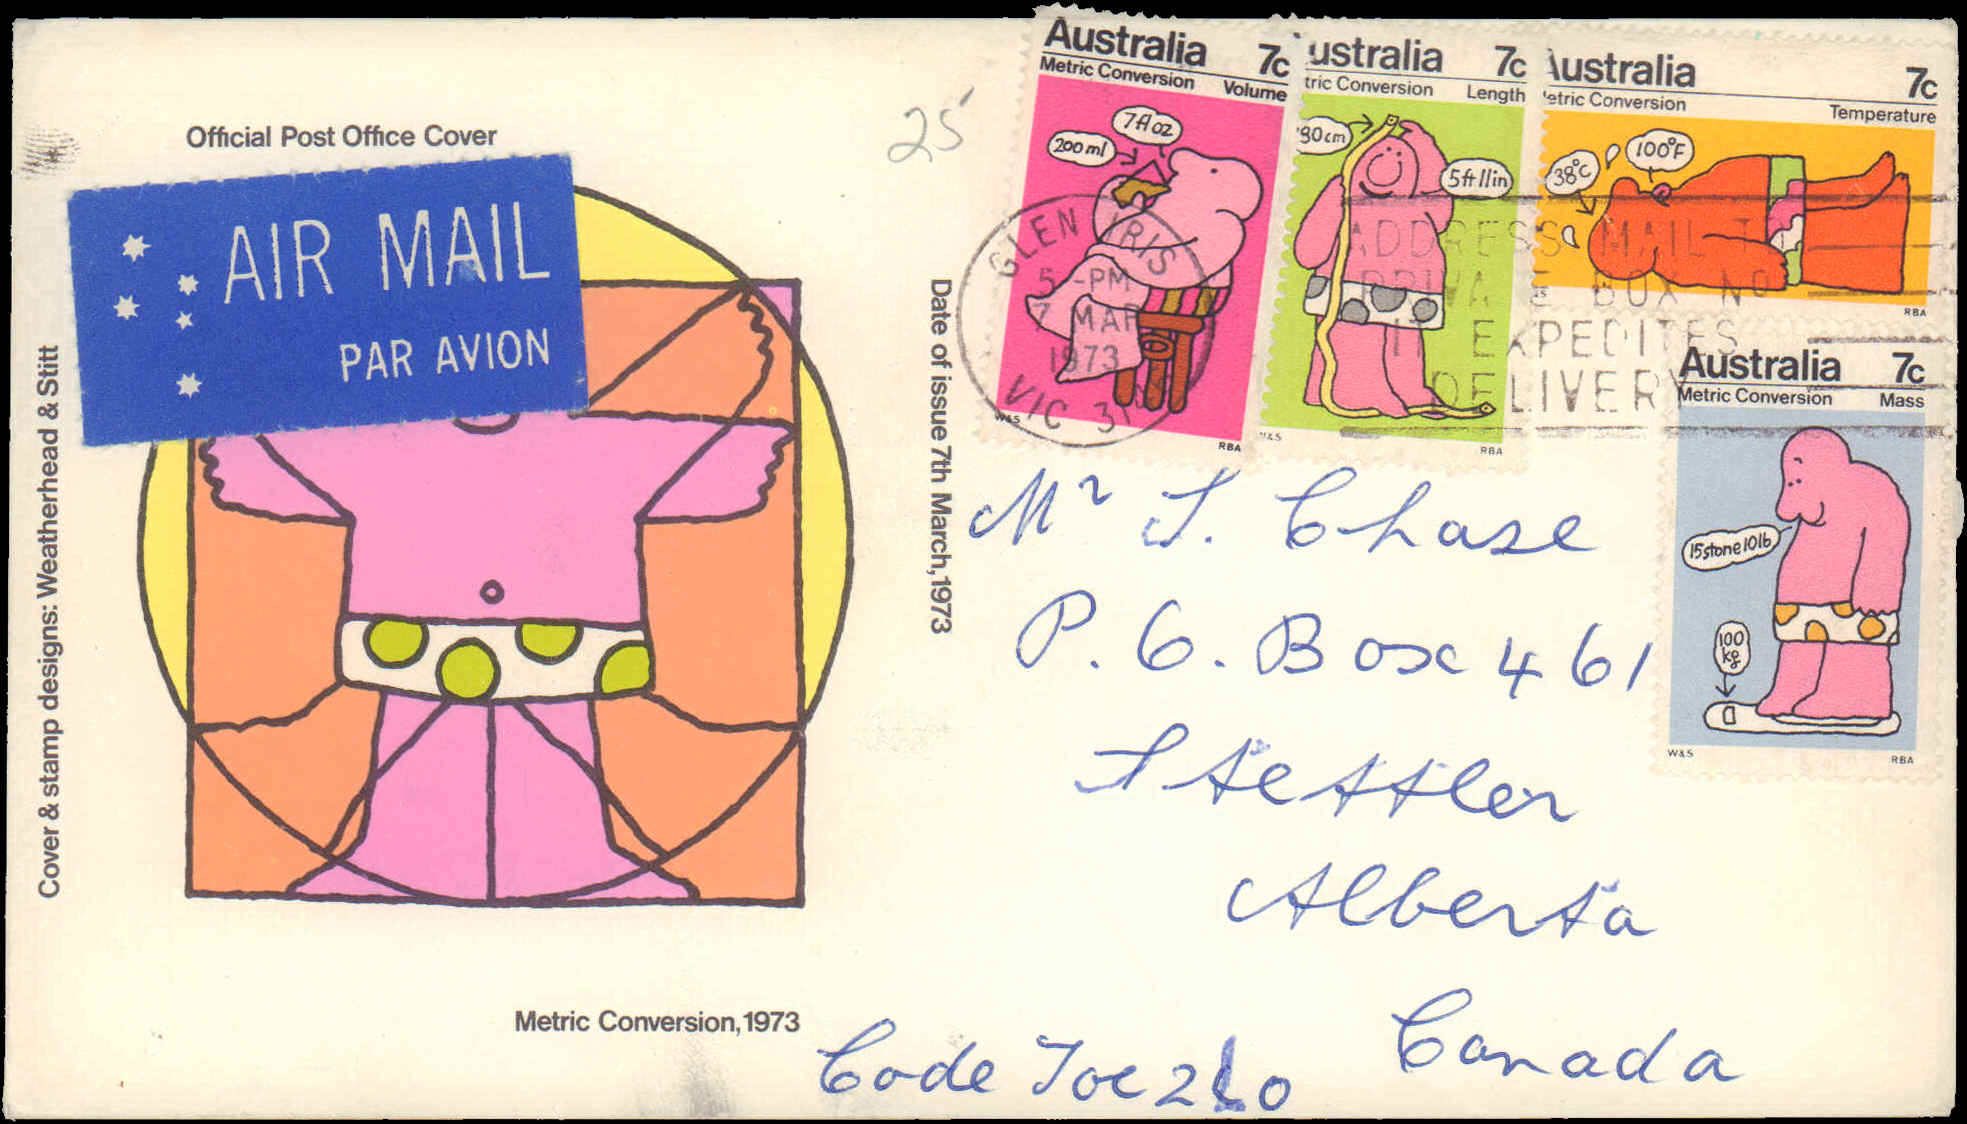 Official Post Office Cover
AIR MAIL
PAR AVION
Cover & stamp designs: Weatherhead & Stitt
Date of issue 7th March,1973
Metric Conversion,1973
25
Australia 7c
Metric Conversion Volume
7fl oz
200ml
W&S RBA
ustralia 7c
tric Conversion Length
80cm
5ft 11in
W&S RBA
Australia 7c
etric Conversion
Temperature
100°F
38°C
RBA
Australia 7c
Metric Conversion Mass
15stone10lb
100
kg
W&S RBA
GLEN IRIS
5 -PM
7 MAR
1973
VIC
ADDRESS MAIL T
PRIVATE BOX No
IT EXPEDITES
DELIVERY
Mr S. Chase
P. O. Box 461
Stettler
Alberta
Canada
Code Toc 2L0